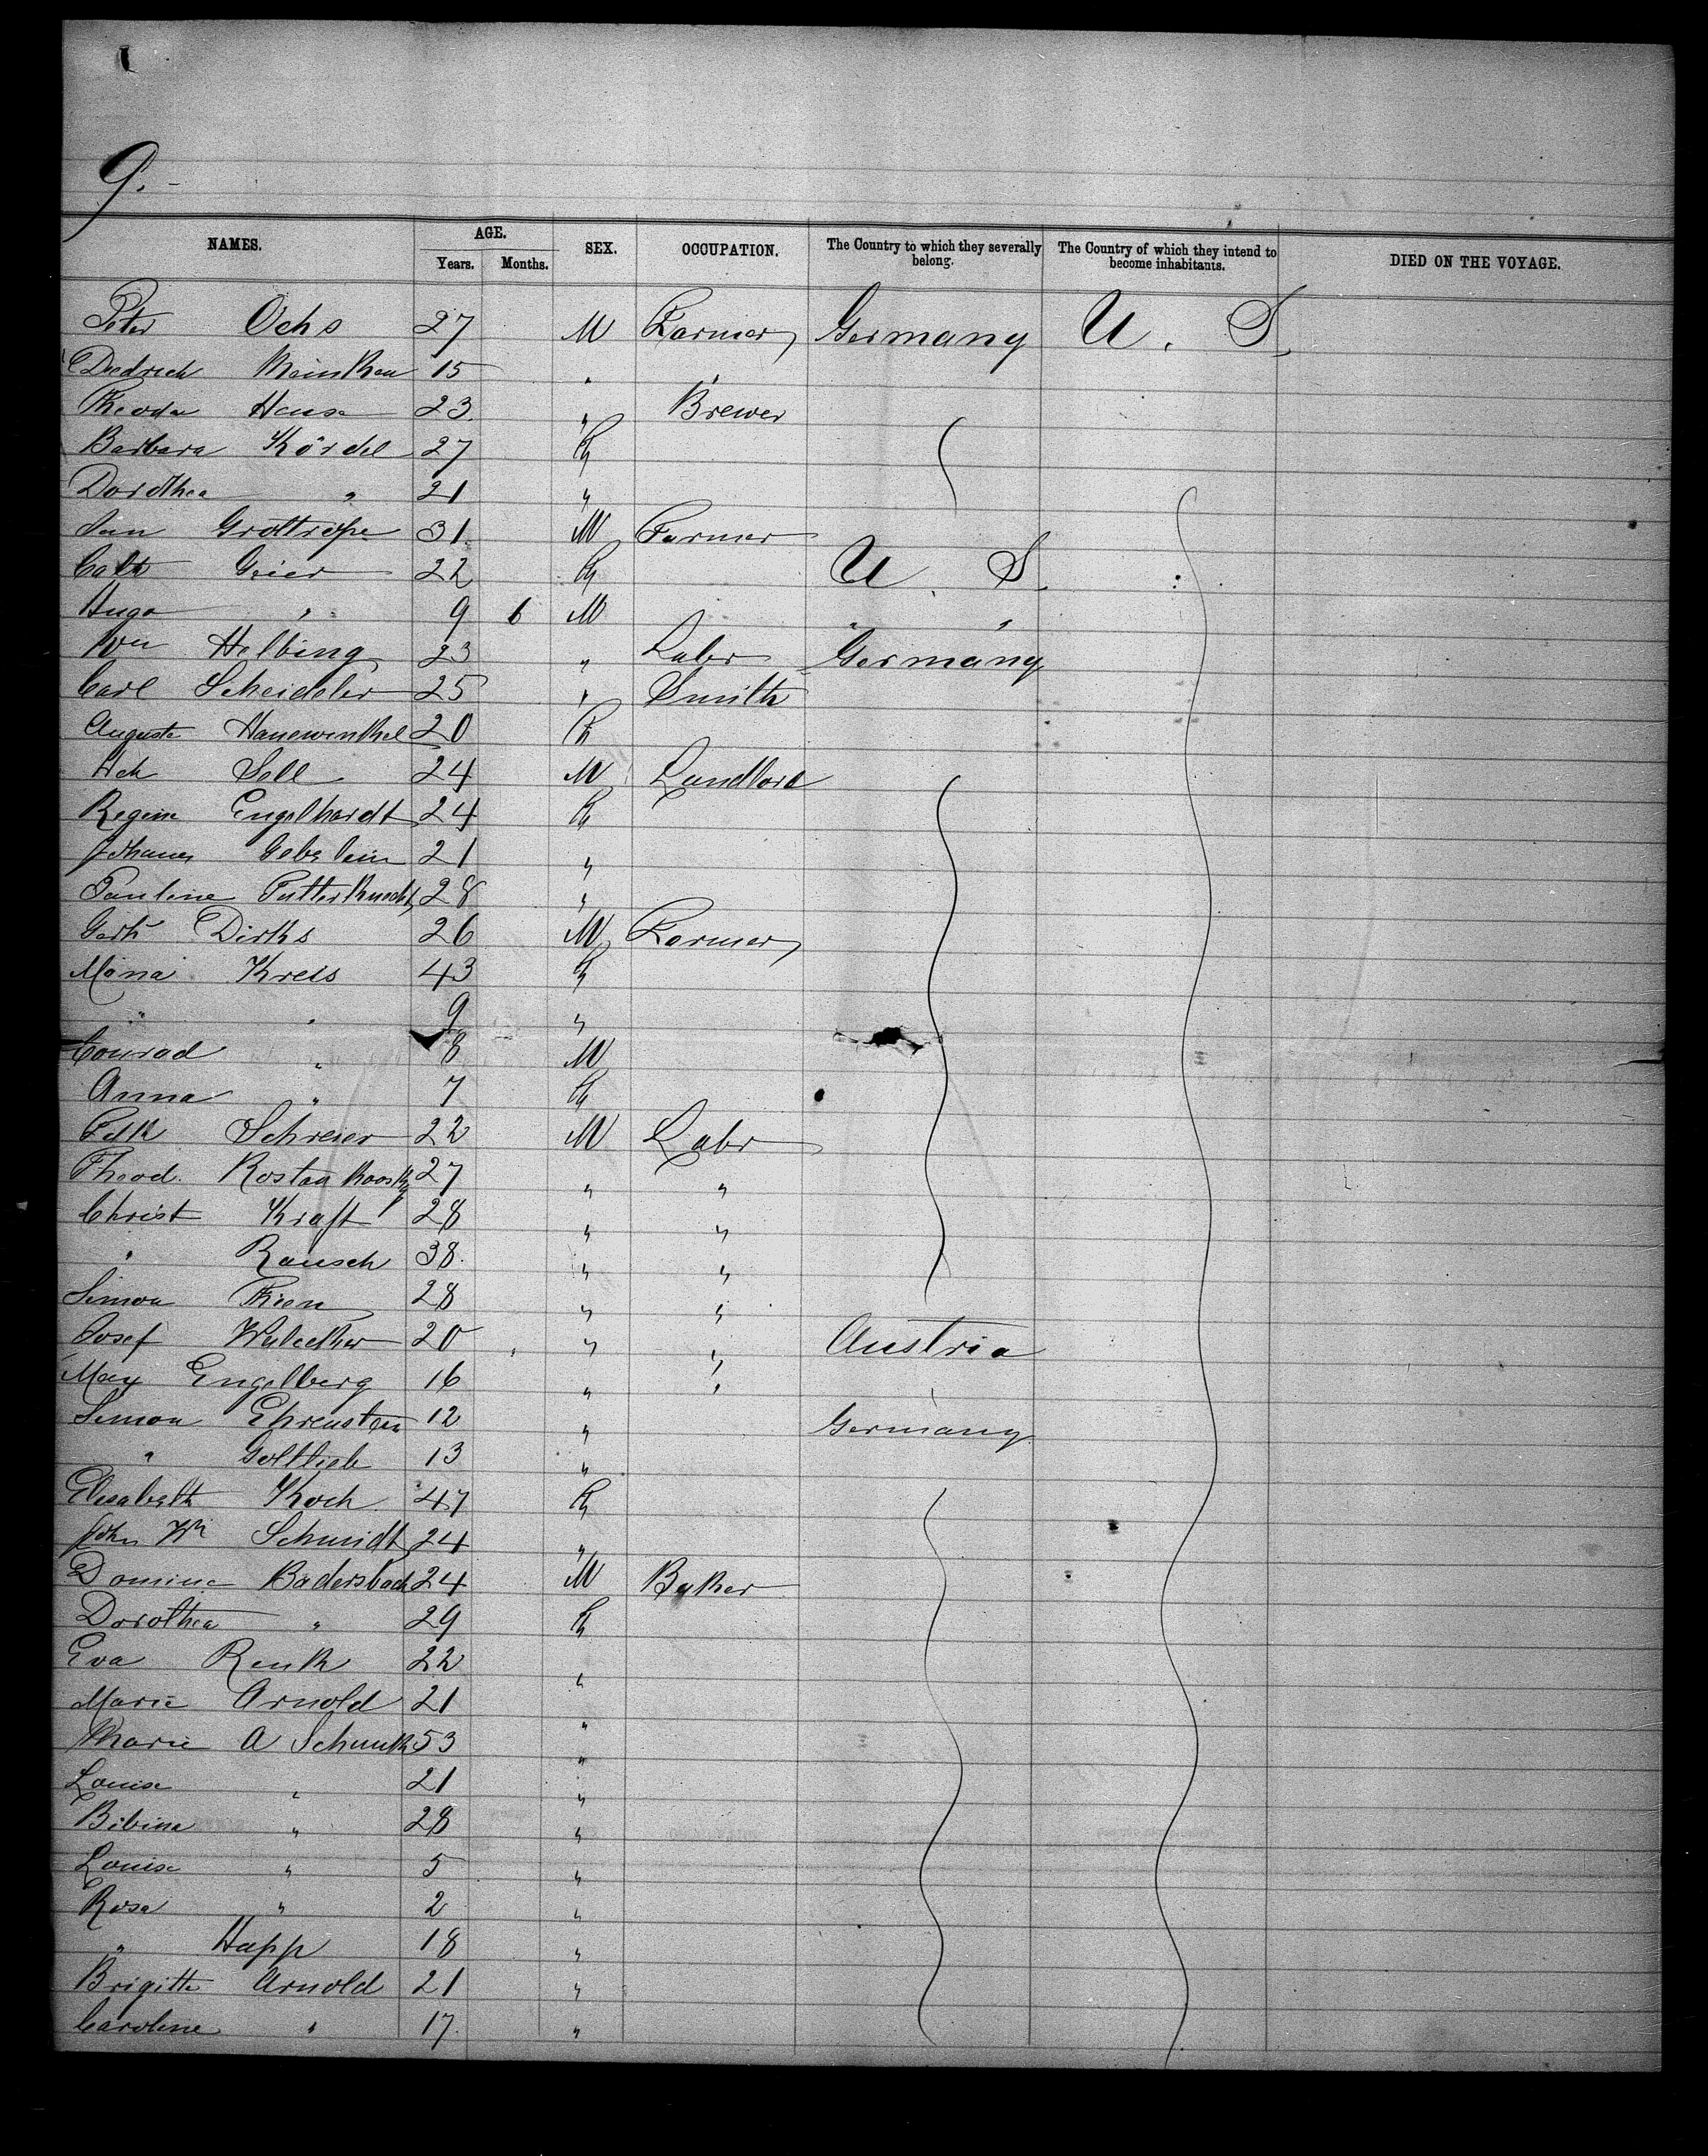 9.
NAMES. AGE. Years. Months. SEX. OCCUPATION. The Country to which they severally belong. The Country of which they intend to become inhabitants. DIED ON THE VOYAGE.
Peter Ochs 27 M Farmer Germany U. S.
Diedrich 15 " "
Theodor 23 " Brewer
Barbara Kördel 27 F
Dorothea " 21 "
31 M Farmer
Cath Geier 22 F U. S.
Hugo " 9 6 M " "
Wm Helbing 23 " Labr Germany
Carl Scheideler 25 " Smith
Auguste Hanewinkel 20 F
Hch Sell 24 M Landlord
Regine Engelhardt 24 F
21 "
Pauline Futterknecht 28 "
Gerh Dirks 26 M Farmer
Mina Kreis 43 F
" " 9 "
Conrad " 8 M
Anna " 7 F
Schreier 22 M Labr
Theod. 27 " "
Christ Kraft 28 " "
" Rausch 38 " "
Simon 28 " "
Josef 20 " " Austria
Max Engelberg 16 " "
Simon Ehrenstein 12 " Germany
" Gottlieb 13 "
Elisabeth Koch 47 F
John Wm Schmidt 24 "
Badersbach 24 M Baker
Dorothea " 29 F
Eva Renk 22 "
Marie Arnold 21 "
Marie A Schunk 53 "
Louise " 21 "
Bibina " 28 "
Louise " 5 "
Rosa " 2 "
" Happ 18 "
Brigitte Arnold 21 "
Caroline " 17 "